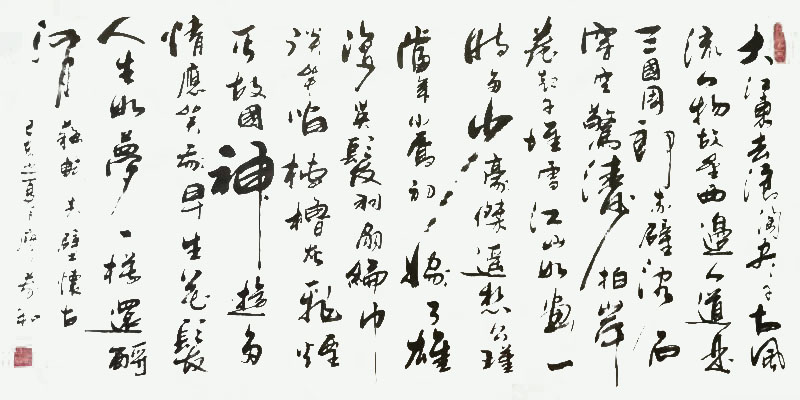 大江東去浪淘盡千古風
流人物故壘西邊人道是
三國周郎赤壁亂石
穿空驚濤拍岸
卷起千堆雪江山如畫一
時多少豪傑遥想公瑾
當年小喬初嫁了雄
姿英髮羽扇綸巾
談笑間檣櫓灰飛煙
滅故國神遊多
情應笑我早生花髮
人生如夢一樽還酹
江月
蘇軾赤壁懷古
己亥